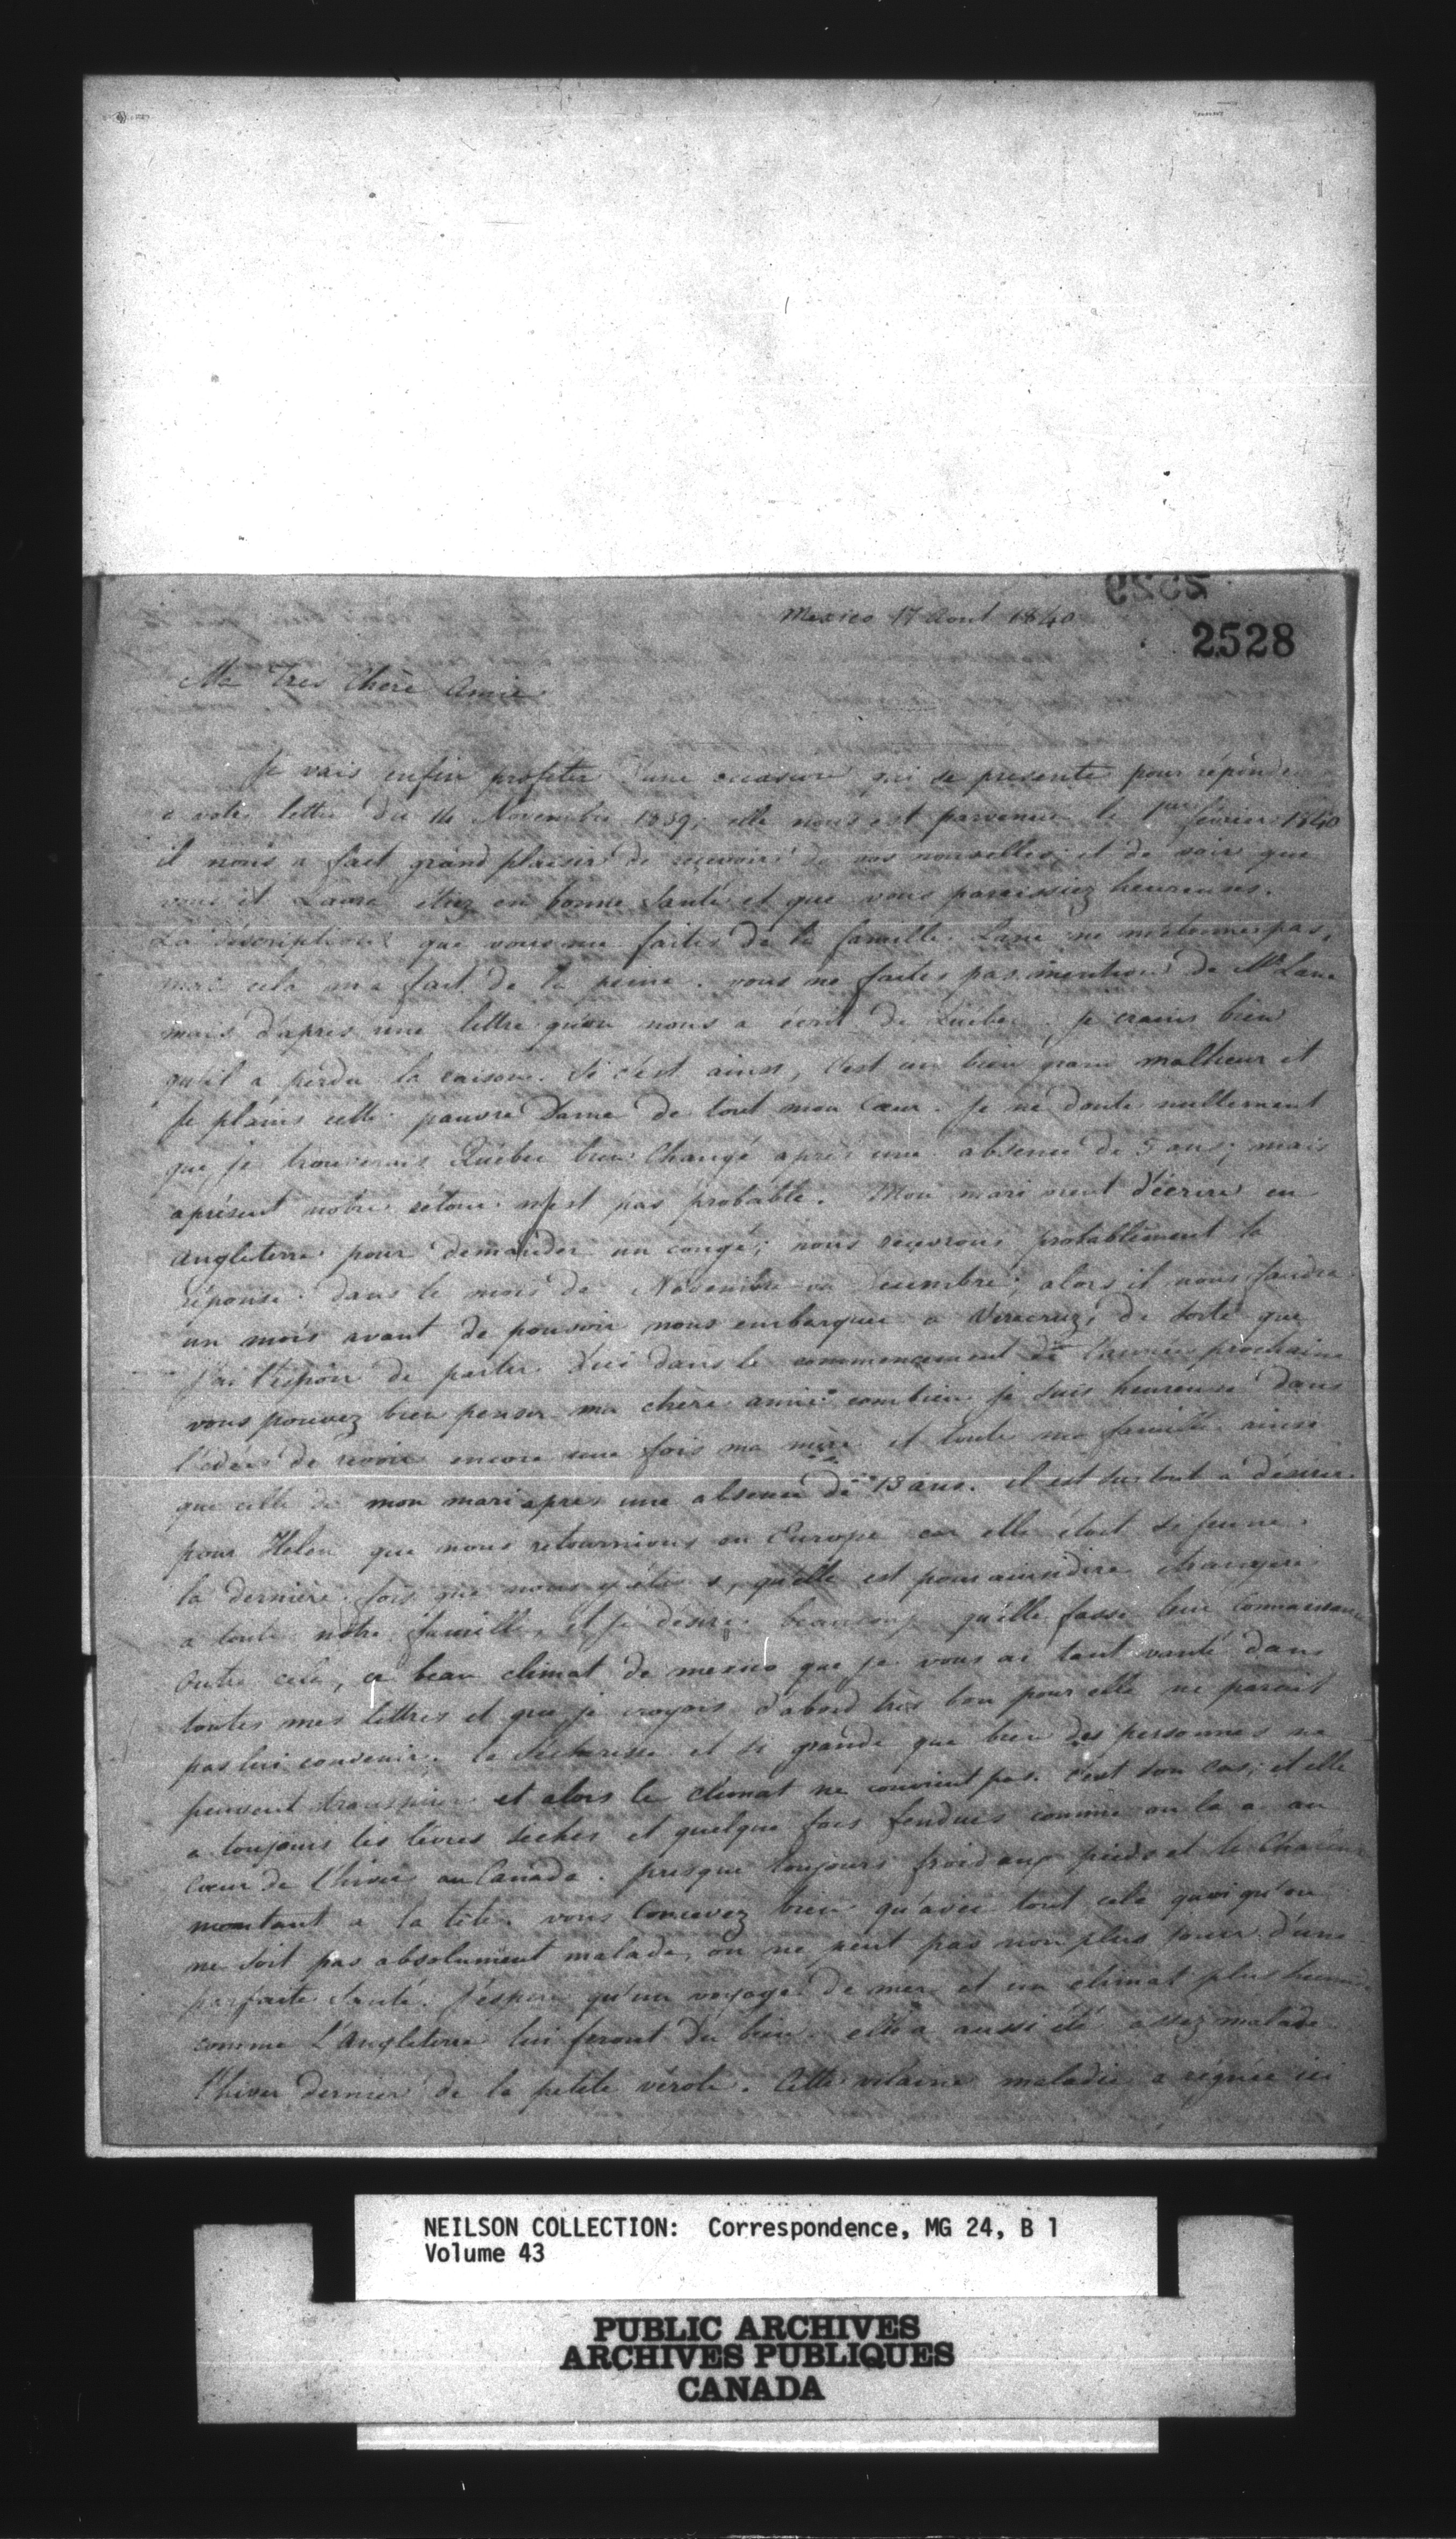 2529
Mexico 17 Aout 1840
2528
Ma Tres Chère Amie
Je vais enfin profiter d'une occasion qui se presente pour répondre
a votre lettre du 14 Novembre 1839; elle nous est parvenue le 1er février 1840
il nous a fait grand plaisir de reçevoir de vos nouvelles; et de voir que
vous et Laura étiez en bonne Santé et que vous paraissiez heureuses.
La déscription que vous me faites de la famille Lane ne m'étonne pas,
mais cela m'a fait de la peine. vous ne faites pas mention de Mr Lane
mais d'apres une lettre qu'on nous a écrit de Québec je crains bien
qu'il a perdu la raison. Si c'est ainsi, c'est un bien grand malheur et
Je plains cette pauvre Dame de tout mon Cœur. Je ne doute nullement
que je trouverais Québec bien Changé après une absence de 5 ans; mais
aprésent notre rétour n'est pas probable. Mon mari vient d'écrire en
Angleterre pour demander un congé; nous reçevrons probablement la
réponse dans le mois de Novembre ou Decembre; alors il nous faudra
un mois avant de pouvoir nous embarquer a Veracruz; de sorte que
J'ai l'espoir de partir d'ici dans le commencement de l'année prochaine
vous pouvez bien penser ma chère amie combien je suis heureuse dans
l'idée de revoir encore une fois ma mère et toute ma famille ainsi
que celle de mon mari apres une absence de 13 ans. il est surtout a désirer
pour Helen que nous retournions en Europe car elle étoit si jeune
la dernière fois que nous y étions, qu'elle est pour ainsi dire étrangère
a toute nôtre famille, et je désire beaucoup qu'elle fasse leur connaissance
Outre cela, ce beau climat de mexico que je vous ai tant vanté dans
toutes mes lettres et que je croyois d'abord très bon pour elle ne parait
pas lui convenir. la Sécheresse est si grande que bien des personnes ne
peuvent transpirer et alors le climat ne convient pas. c'est son cas; et elle
a toujours les lèvres seches et quelque fois fendues comme on la a au
Cœur de l'hiver au Canada. presque toujours froid aux pieds et la Chaleur
montant a la tête. vous Concevez bien qu'avec tout cela quoi qu'on
ne soit pas absolument malade, on ne peut pas non plus jouir d'une
parfaite Santé. J'éspere qu'un voyage de mer et un climat plus humide
comme L'Angleterre lui feront du bien. elle a aussi été assez malade
l'hiver dernier de la petite vérole. Cette vilaine maladie a régnée ici
NEILSON COLLECTION: Correspondence, MG 24, B 1
Volume 43
PUBLIC ARCHIVES
ARCHIVES PUBLIQUES
CANADA